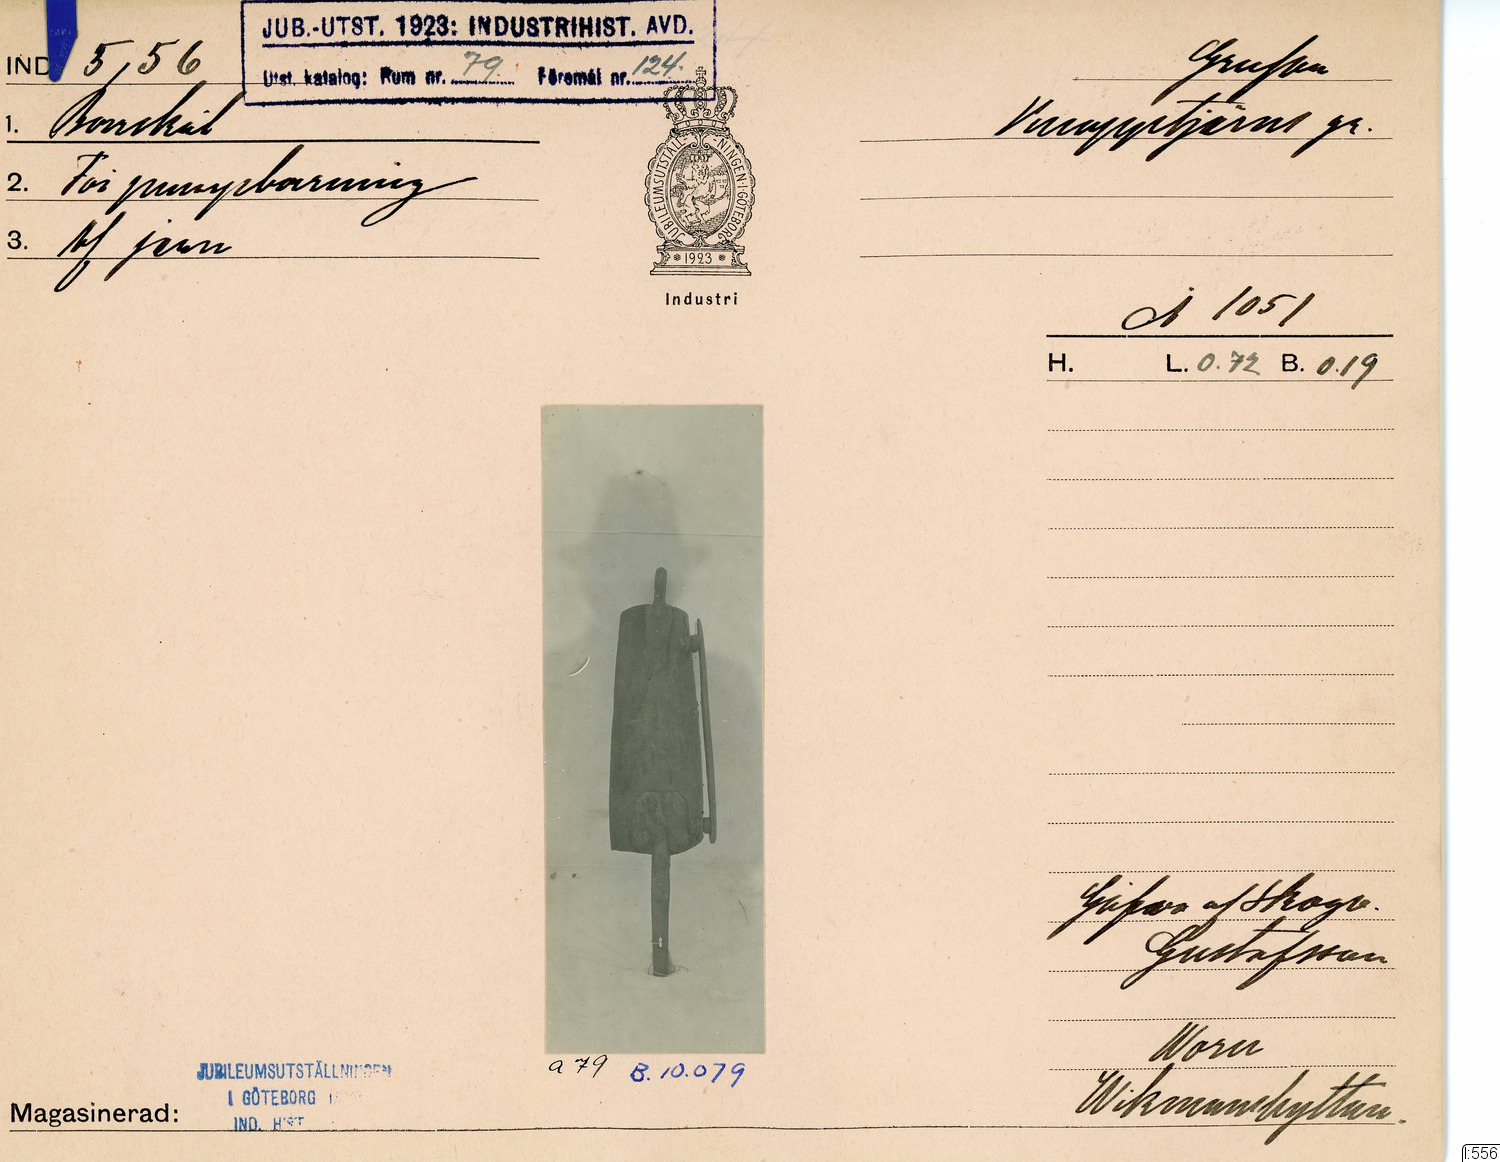 JUB.-UTST. 1923: INDUSTRIHIST. AVD.
Utst. katalog: Rum nr. 79. Föremål nr. 124.
IND. 5,56
1. Borrskål
2. För pumpborrning
3. Af järn
JUBILEUMSUTSTÄLLNINGEN I GÖTEBORG
1923
Industri
Grufva
gr.
A 1051
H. L. 0.72 B. 0.19
Gåfva af Skogv.
Gustafsson
Worn
Wikmanshyttan.
a 79 B. 10.079
JUBILEUMSUTSTÄLLNINGEN
I GÖTEBORG
IND. HIST
Magasinerad:
I:556